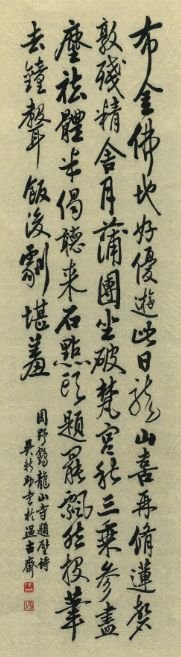 布金佛地好優遊此日龍山喜再脩蓮磬
敲殘精舍月蒲團坐破梵宮秋三乘參盡
塵祛體半偈聽來石點頭題罷飄然投筆
去鐘聲飯後劇堪羞
周野鶴龍山寺題壁詩
吳書於溫古齋